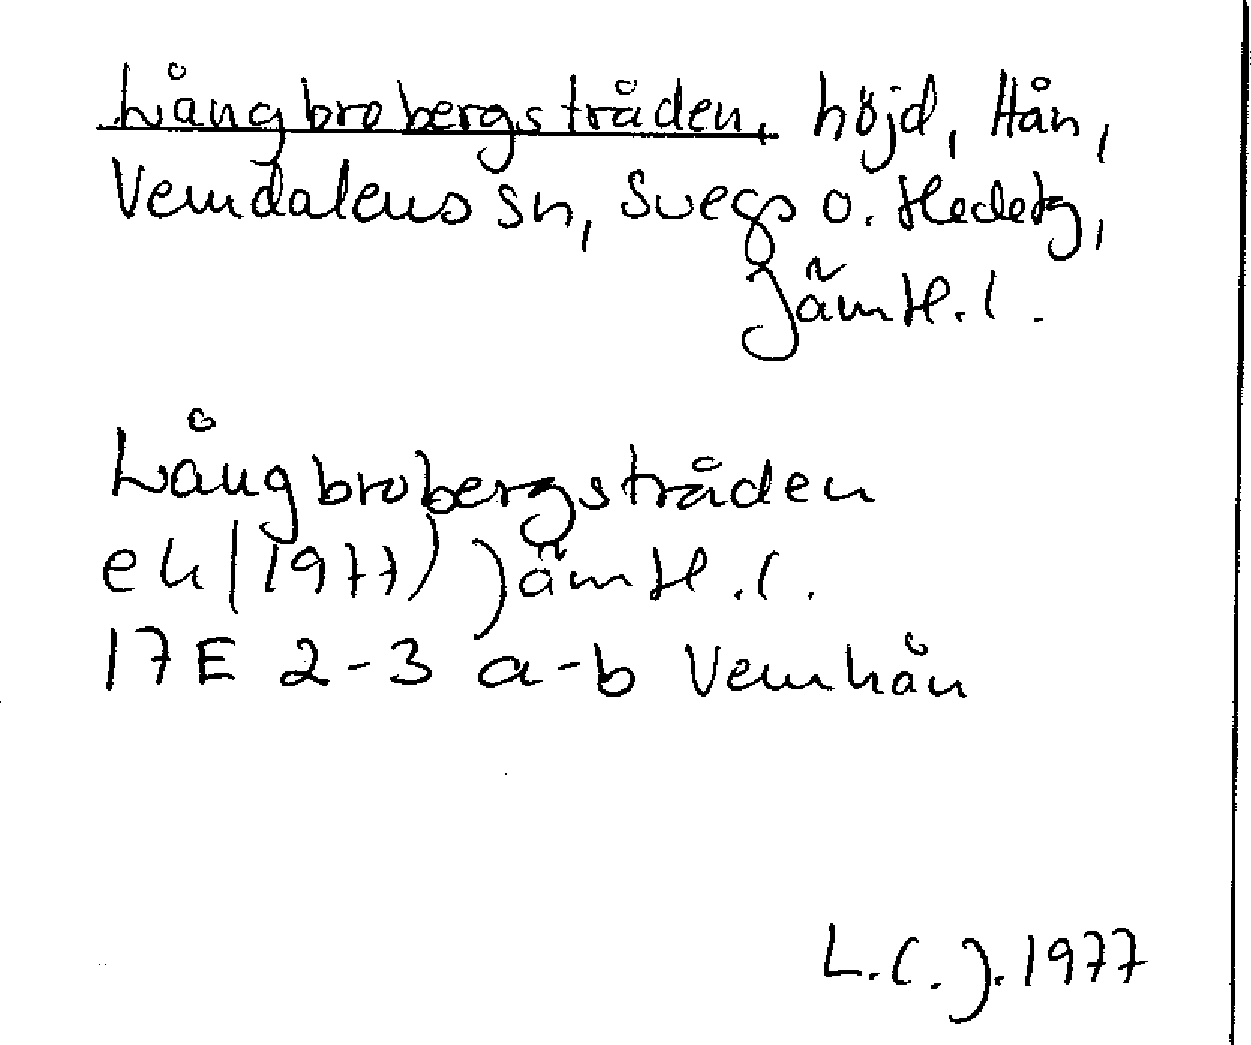 Långbrobergstråden, höjd, Hån,
Vemdalens sn, Svegs o. Hedetg,
Jämtl. l.
Långbrobergstråden
ek (1977) Jämtl. l.
17E 2-3 a-b Vemhån
L. C. J. 1977